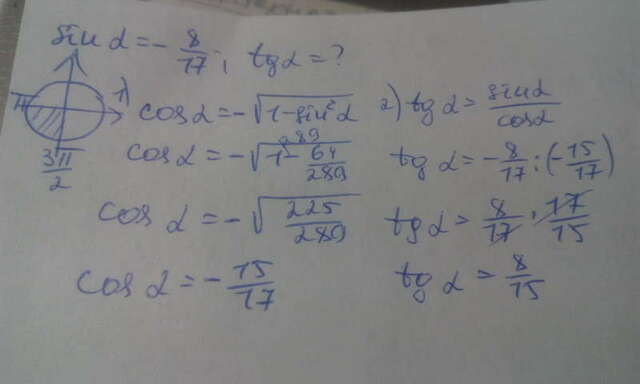 sin α = - 8/17; tg α = ?
π
3π/2
1) cos α = -√(1-sin²α)
cos α = -√(1 - 64/289)
289
cos α = -√(225/289)
cos α = - 15/17
2) tg α = sin α/cos α
tg α = - 8/17 : (- 15/17)
tg α = 8/17 · 17/15
tg α = 8/15